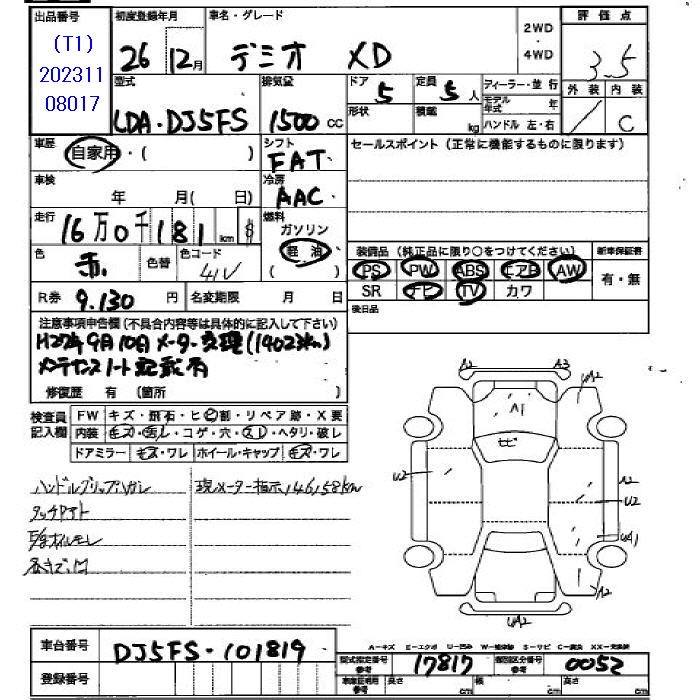 出品番号 初度登録年月 車名・グレード 2WD・4WD 評価点
(T1)
202311
08017
26 12月 デミオ XD 3.5
型式 排気量 ドア 定員 フィーラー・並行 外装 内装
LDA・DJ5FS 1500 CC 5 5人 モデル年式 年 / C
形状 積載 kg ハンドル 左・右
車歴 自家用・( ) シフト FAT セールスポイント (正常に機能するものに限ります)
車検 年 月( 日) 冷房 AAC
走行 16万0千181km 燃料 ガソリン
軽油
( )
色 赤 色替 色コード 41V
装備品 (純正品に限り○をつけてください) 新車保証書
PS PW ABS エアB AW 有・無
SR ナビ TV カワ
R券 9.130 円 名変期限 月 日 後日品
注意事項申告欄 (不具合内容等は具体的に記入して下さい)
H27年9月10日メーター交換(1402km)
メンテナンスノート記載有
修復歴 有 (箇所 )
検査員記入欄 FW キズ・飛石・ヒビ割・リペア跡・X要
内装 キズ・汚レ・コゲ・穴・スレ・ヘタリ・破レ
ドアミラー キズ・ワレ ホイール・キャップ キズ・ワレ
ハンドルグリップハガレ 現メーター指示146158km
タッチアト
各キズ・凹
A2 A3
A2
A1
ヒビ
U2 A2
U2
A2
UA2
A-キズ E-エクボ U-凹み W-補修跡 S-サビ C-腐食 XX-交換済
車台番号 DJ5FS-101819 型式指定番号 参考 17817 類別区分番号 参考 0052
登録番号 車庫証明用 参考 長さ cm 幅 cm 高さ cm